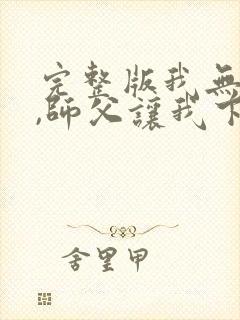 完整版我無
,師父讓我下
舍里甲